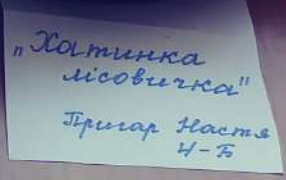 „Хатинка
лісовичка"
Пригар Настя
4-Б